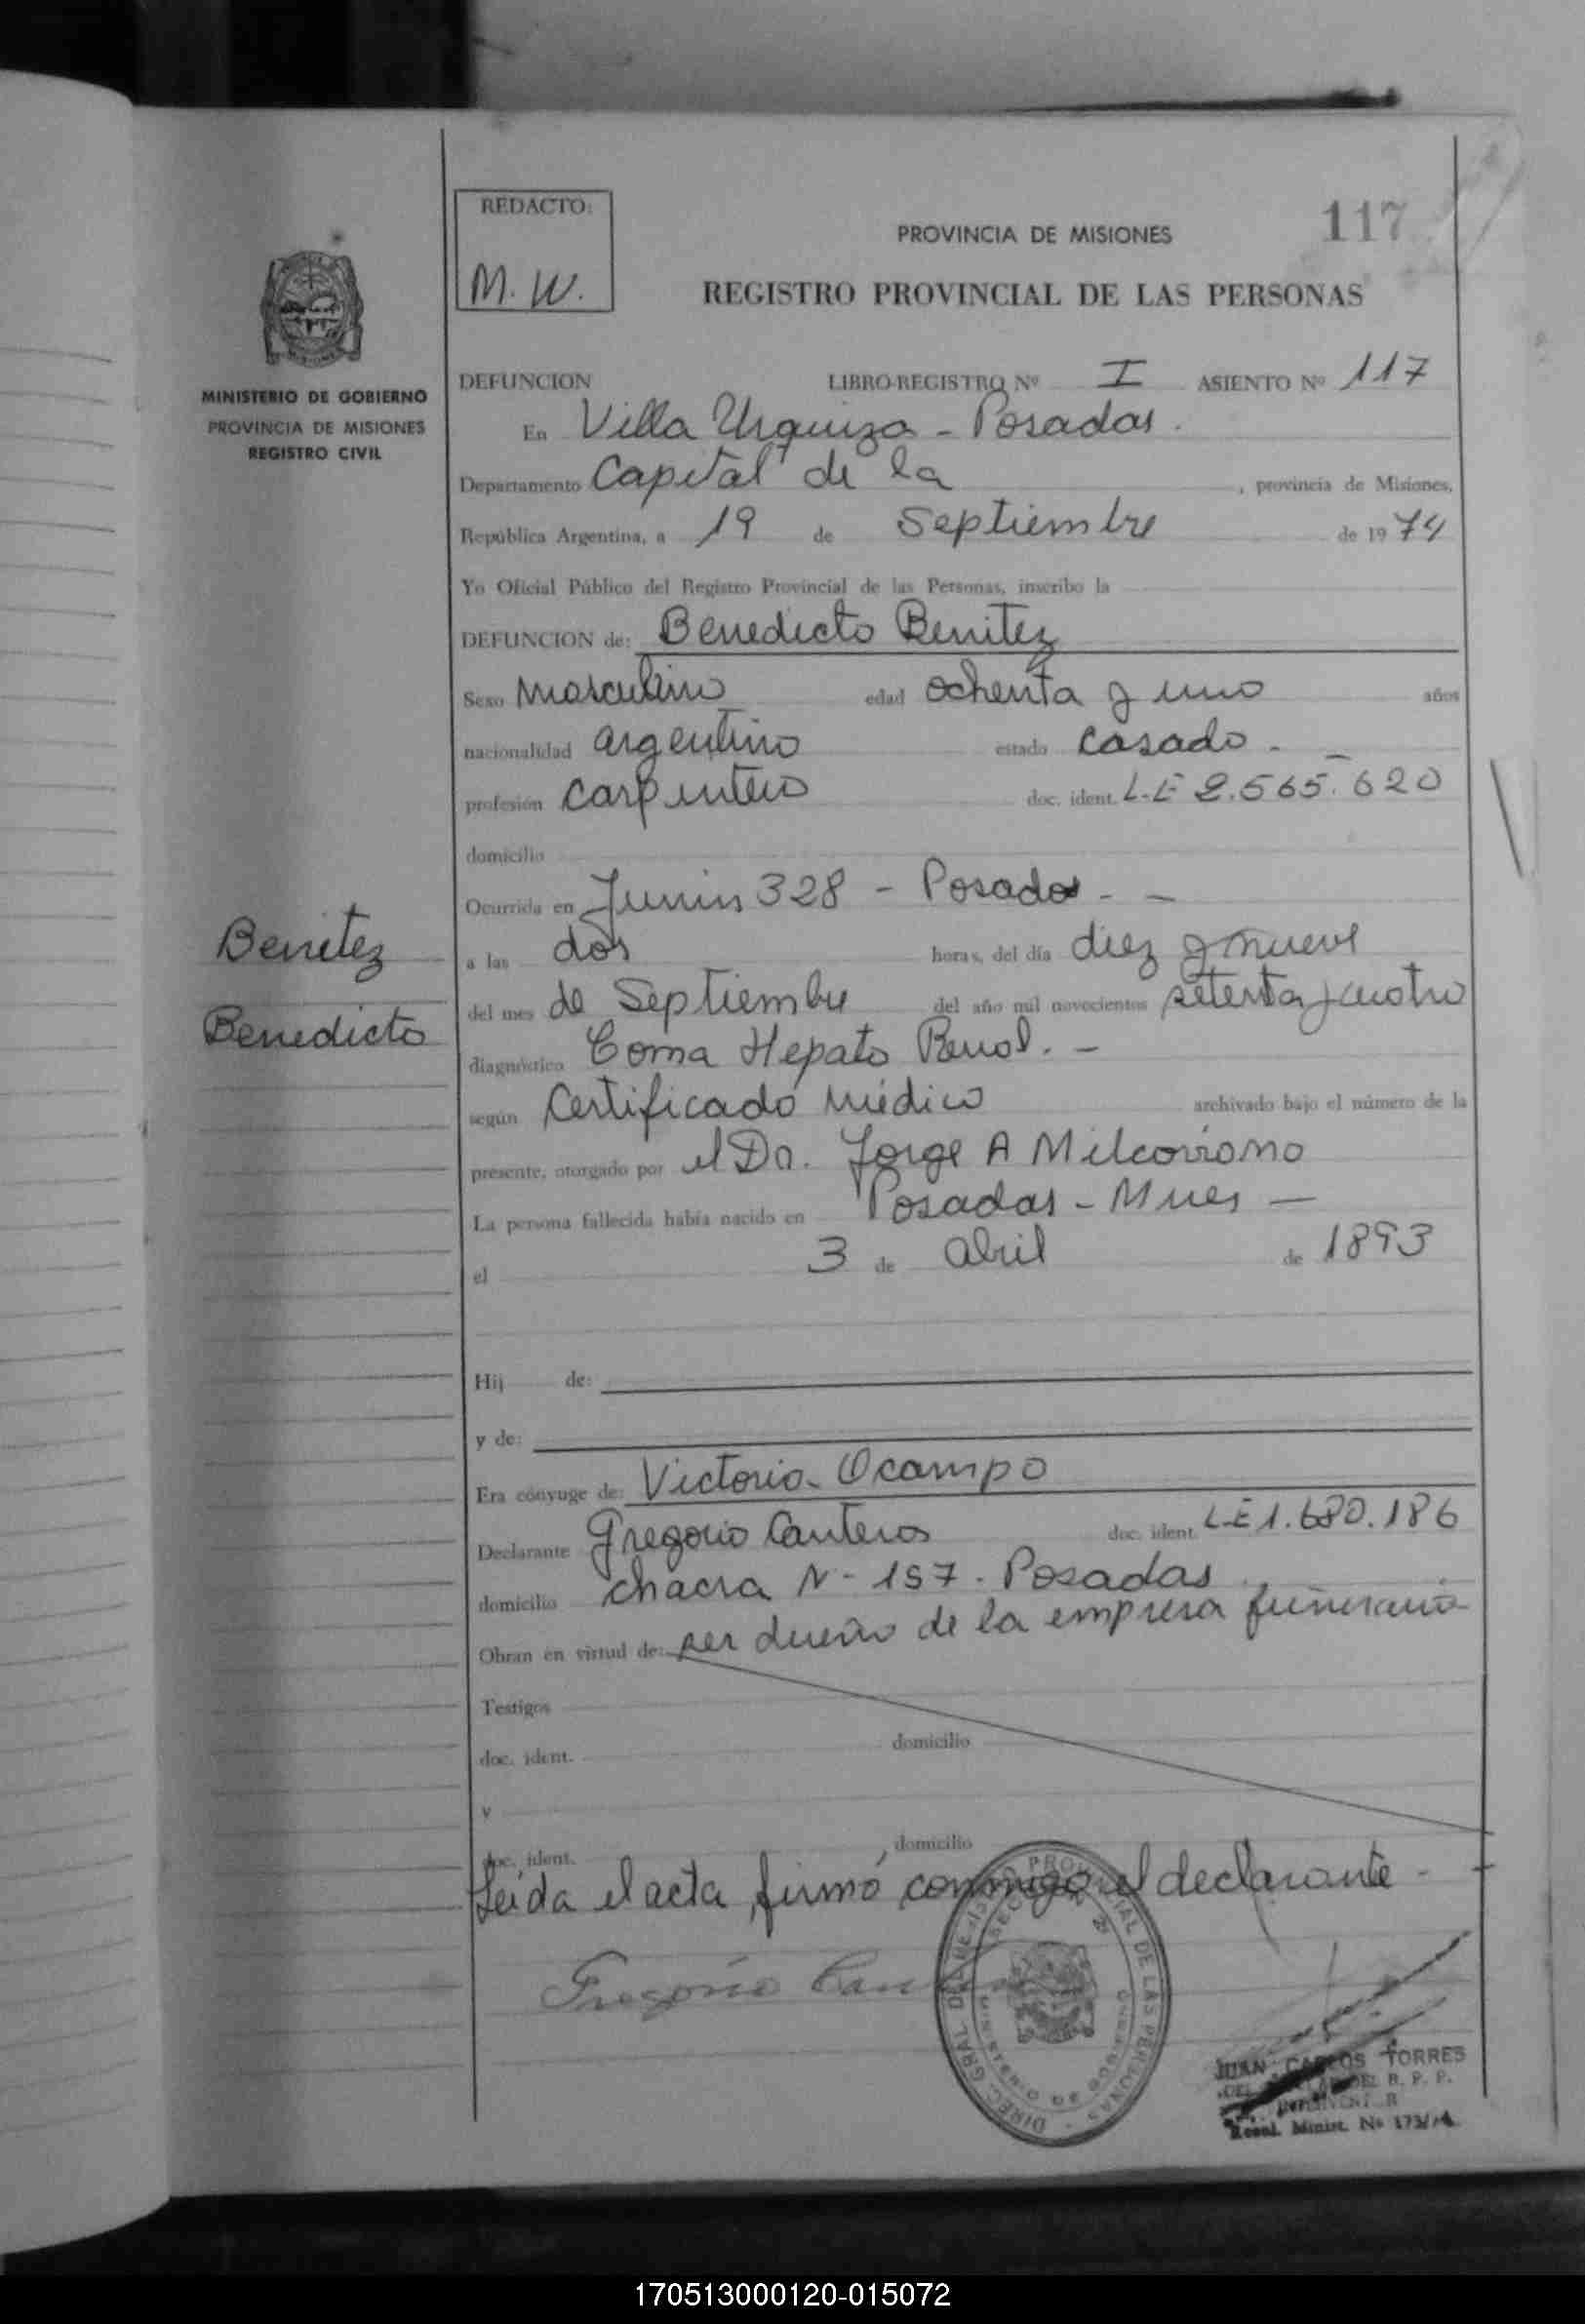 REDACTO:
M. W.
PROVINCIA DE MISIONES
117
REGISTRO PROVINCIAL DE LAS PERSONAS
MINISTERIO DE GOBIERNO
PROVINCIA DE MISIONES
REGISTRO CIVIL
DEFUNCION LIBRO-REGISTRO Nº I ASIENTO Nº 117
En Villa Urquiza - Posadas.
Departamento Capital de la , provincia de Misiones,
República Argentina, a 19 de Septiembre de 1974
Yo Oficial Público del Registro Provincial de las Personas, inscribo la
DEFUNCION de: Benedicto Benitez
Sexo masculino edad ochenta y uno años
nacionalidad argentino estado casado. -
profesión carpintero doc. ident. L.E 2.565.620
domicilio
Ocurrida en Junin 328 - Posadas - -
Benitez
a las dos horas, del día diez y nueve
del mes de Septiembre del año mil novecientos setenta y cuatro
Benedicto
diagnóstico Coma Hepato Renal. -
según Certificado médico archivado bajo el número de la
presente, otorgado por el Dr. Jorge A
La persona fallecida había nacido en Posadas - Mnes -
el 3 de abril de 1893
Hij de:
y de:
Era cónyuge de: Victoria Ocampo
Declarante Gregorio Canteros doc. ident. L.E 1.680.186
domicilio chacra N- 157 - Posadas
Obran en virtud de: ser dueño de la empresa funeraria
Testigos
doc. ident. domicilio
y
doc. ident. domicilio
Leida el acta, firmó conmigo el declarante -
Gregorio Can
DIREC. GRAL. DEL REGISTRO PROVINCIAL DE LAS PERSONAS
MINISTERIO DE GOBIERNO
JUAN CARLOS TORRES
DEL R. P. P.
Resol. Minist. Nº 173/74
170513000120-015072